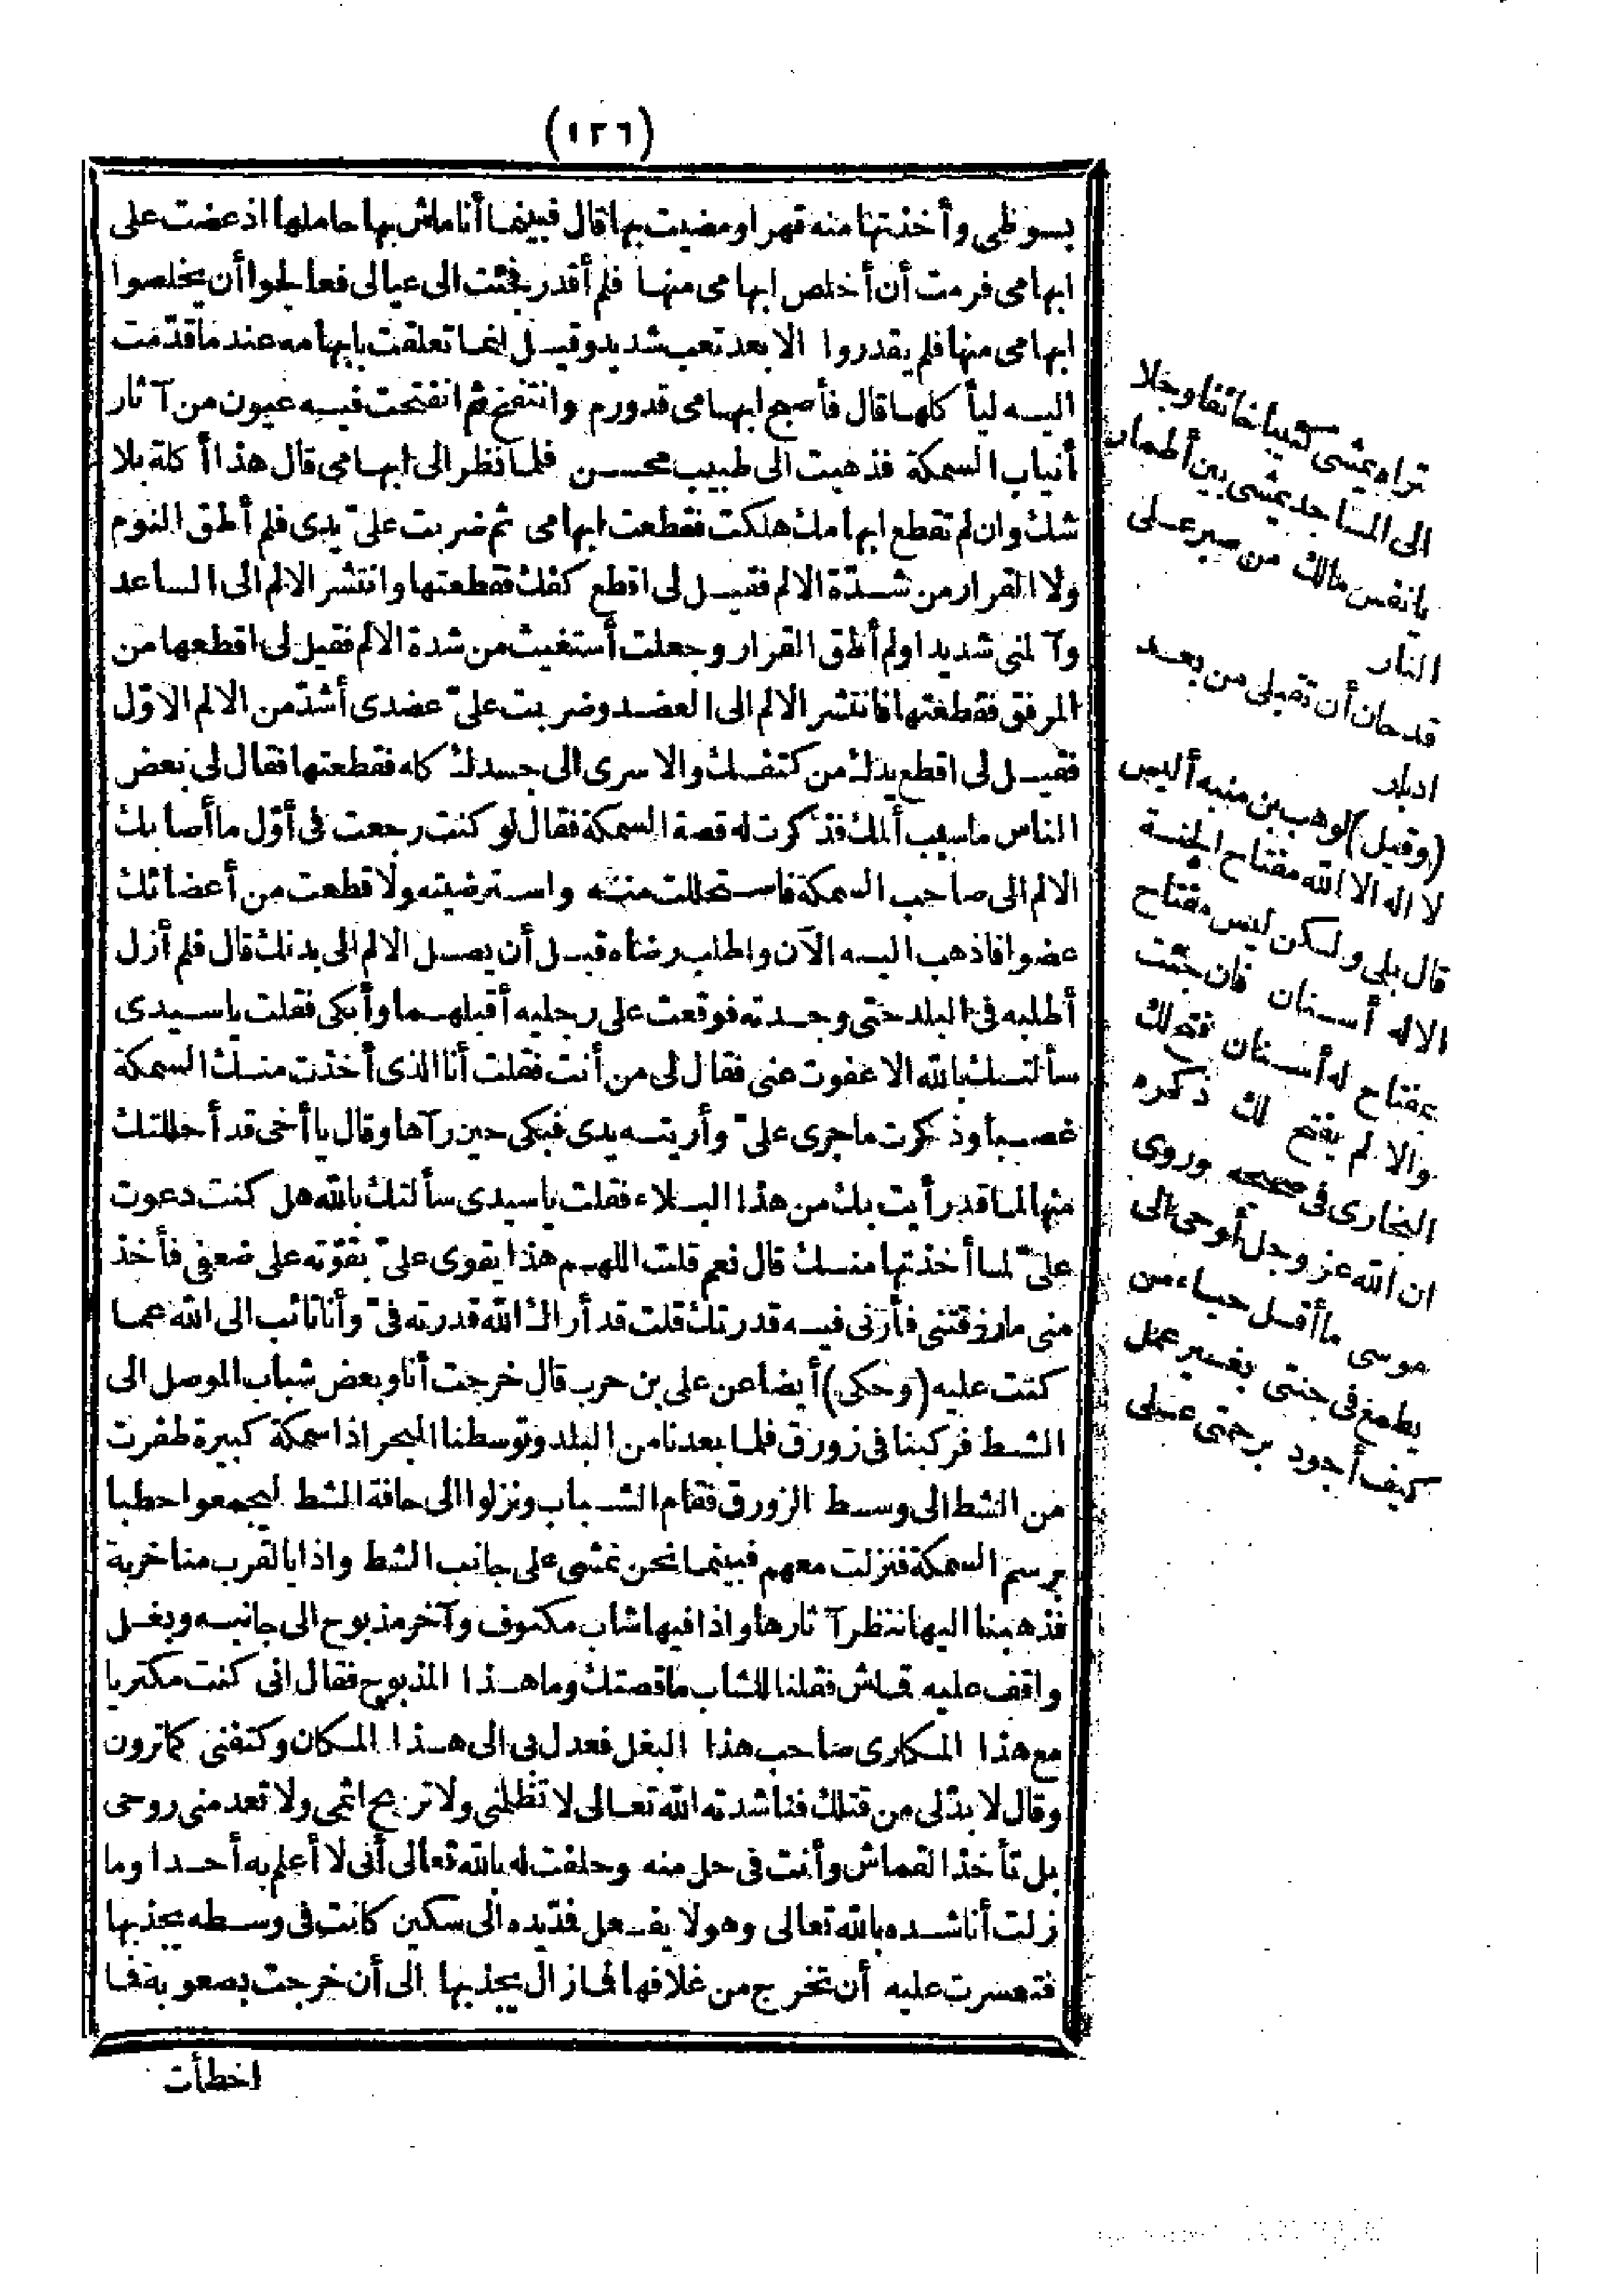 (١٢٦)
بسوطى وأخذتها منه قهرا ومضيت بها قال فبينما أنا ماش بها حاملها اذ عضت على
ابهامى فرمت أن أخلص ابهامى منها فلم أقدر فجئت الى عيالى فعالجوا أن يخلصوا
ابهامى منها فلم يقدروا الا بعد تعب شديد وقيل انما تعلقت بابهامه عند ما قدّمت
اليه ليأكلها قال فأصبح ابهامى قد ورم وانتفخ ثم انفتحت فيه عيون من آثار
أنياب السمكة فذهبت الى طبيب محسن فلما نظر الى ابهامى قال هذا أكلة بلا
شك وان لم تقطع ابهامك هلكت فقطعت ابهامى ثم ضربت علىّ يدى فلم أطق النوم
ولا القرار من شدّة الالم فقيل لى اقطع كفك فقطعتها وانتشر الالم الى الساعد
وآلمنى شديدا ولم أطق القرار وجعلت أستغيث من شدة الالم فقيل لى اقطعها من
المرفق فقطعتها فانتشر الالم الى العضد وضربت علىّ عضدى أشدّ من الالم الاوّل
فقيل لى اقطع يدك من كتفك والا سرى الى جسدك كله فقطعتها فقال لى بعض
الناس ما سبب ألمك فذكرت له قصة السمكة فقال لو كنت رجعت فى أوّل ما أصابك
الالم الى صاحب السمكة فاستحللت منه واسترضيته ولا قطعت من أعضائك
عضوا فاذهب اليه الآن واطلب رضاه قبل أن يصل الالم الى بدنك قال فلم أزل
أطلبه فى البلد حتى وجدته فوقعت على رجليه أقبلهما وأبكى فقلت ياسيدى
سألتك بالله الا عفوت عنى فقال لى من أنت فقلت أنا الذى أخذت منك السمكة
غصبا وذكرت ماجرى علىّ وأريته يدى فبكى حين رآها وقال يا أخى قد أحللتك
منها لما قد رأيت بك من هذا البلاء فقلت ياسيدى سألتك بالله هل كنت دعوت
علىّ لما أخذتها منك قال نعم قلت اللهم هذا يقوى علىّ بقوّته على ضعفى فأخذ
منى مارزقتنى فأرنى فيه قدرتك قلت قد أراك الله قدرته فىّ وأنا تائب الى الله عما
كنت عليه (وحكى) أيضا عن على بن حرب قال خرجت أنا وبعض شباب الموصل الى
الشط فركبنا فى زورق فلما بعدنا من البلد وتوسطنا البحر اذا سمكة كبيرة طفرت
من الشط الى وسط الزورق فقام الشباب ونزلوا الى حافة الشط ليجمعوا حطبا
برسم السمكة فنزلت معهم فبينما نحن نمشى على جانب الشط واذا بالقرب منا خربة
فذهبنا اليها ننتظر آثارها واذا فيها شاب مكتوف وآخر مذبوح الى جانبه وبغل
واقف عليه قماش فقلنا للشاب ماقصتك وما هذا المذبوح فقال انى كنت مكتريا
مع هذا المكارى صاحب هذا البغل فعدل بى الى هذا المكان وكتفنى كماترون
وقال لا بدّلى من قتلك فناشدته الله تعالى لا تظلمنى ولا تربح اثمى ولا تعدمنى روحى
بل تأخذ القماش وأنت فى حل منه وحلفت له بالله تعالى أنى لا أعلم به أحدا وما
زلت أناشده بالله تعالى وهو لا يفعل فمدّ يده الى سكين كانت فى وسطه يجذبها
فتعسرت عليه أن تخرج من غلافها فما زال يجذبها الى أن خرجت بصعوبة فما
اخطأت
تراه يمشى كئيبا خائفا وجلا
الى المساجد يمشى بين أطمار
يا نفس مالك من صبر على
النار
قد حان أن تقبلى من بعد
ادبار
(وقيل) لوهب بن منبه أليس
لا اله الا الله مفتاح الجنة
قال بلى ولكن ليس مفتاح
الا له أسنان فان جئت
بمفتاح له أسنان فتح لك
والا لم يفتح لك ذكره
البخارى فى صحيحه وروى
ان الله عز وجل أوحى الى
موسى ما أقل حياء من
يطمع فى جنتى بغير عمل
كيف أجود برحمتى على